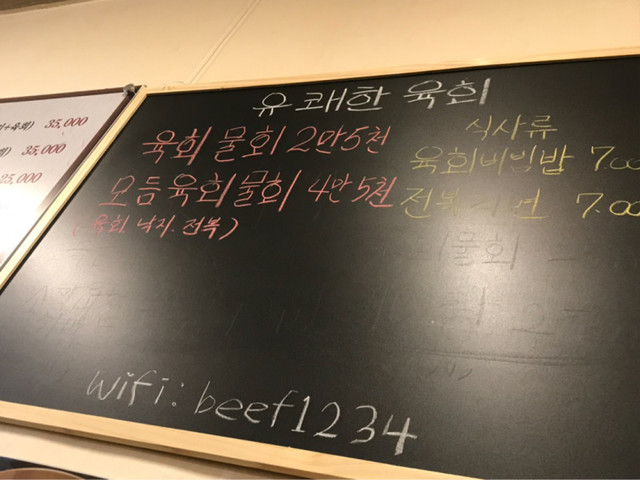 유쾌한 육회
육회 물회 2만5천
모듬육회물회 4만5천
(육회. 낙지. 전복)
식사류
육회비빔밥 7.00
전복라면 7.00
물회
wifi: beef1234
35,000
35,000
25,000